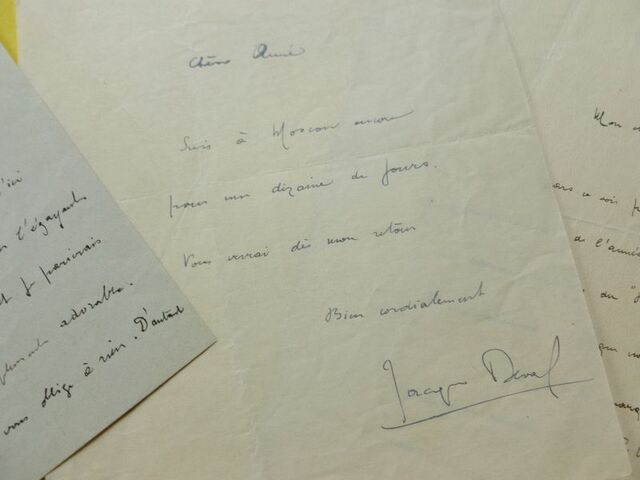 Chère Annie
Suis à Moscou encore
pour une dizaine de jours.
Vous verrai dès mon retour
Bien cordialement
Jacques Deval
l'égayante
et je parierais
adorable.
vous oblige à rien. D'autant
Mon
ce soir
de l'année
du